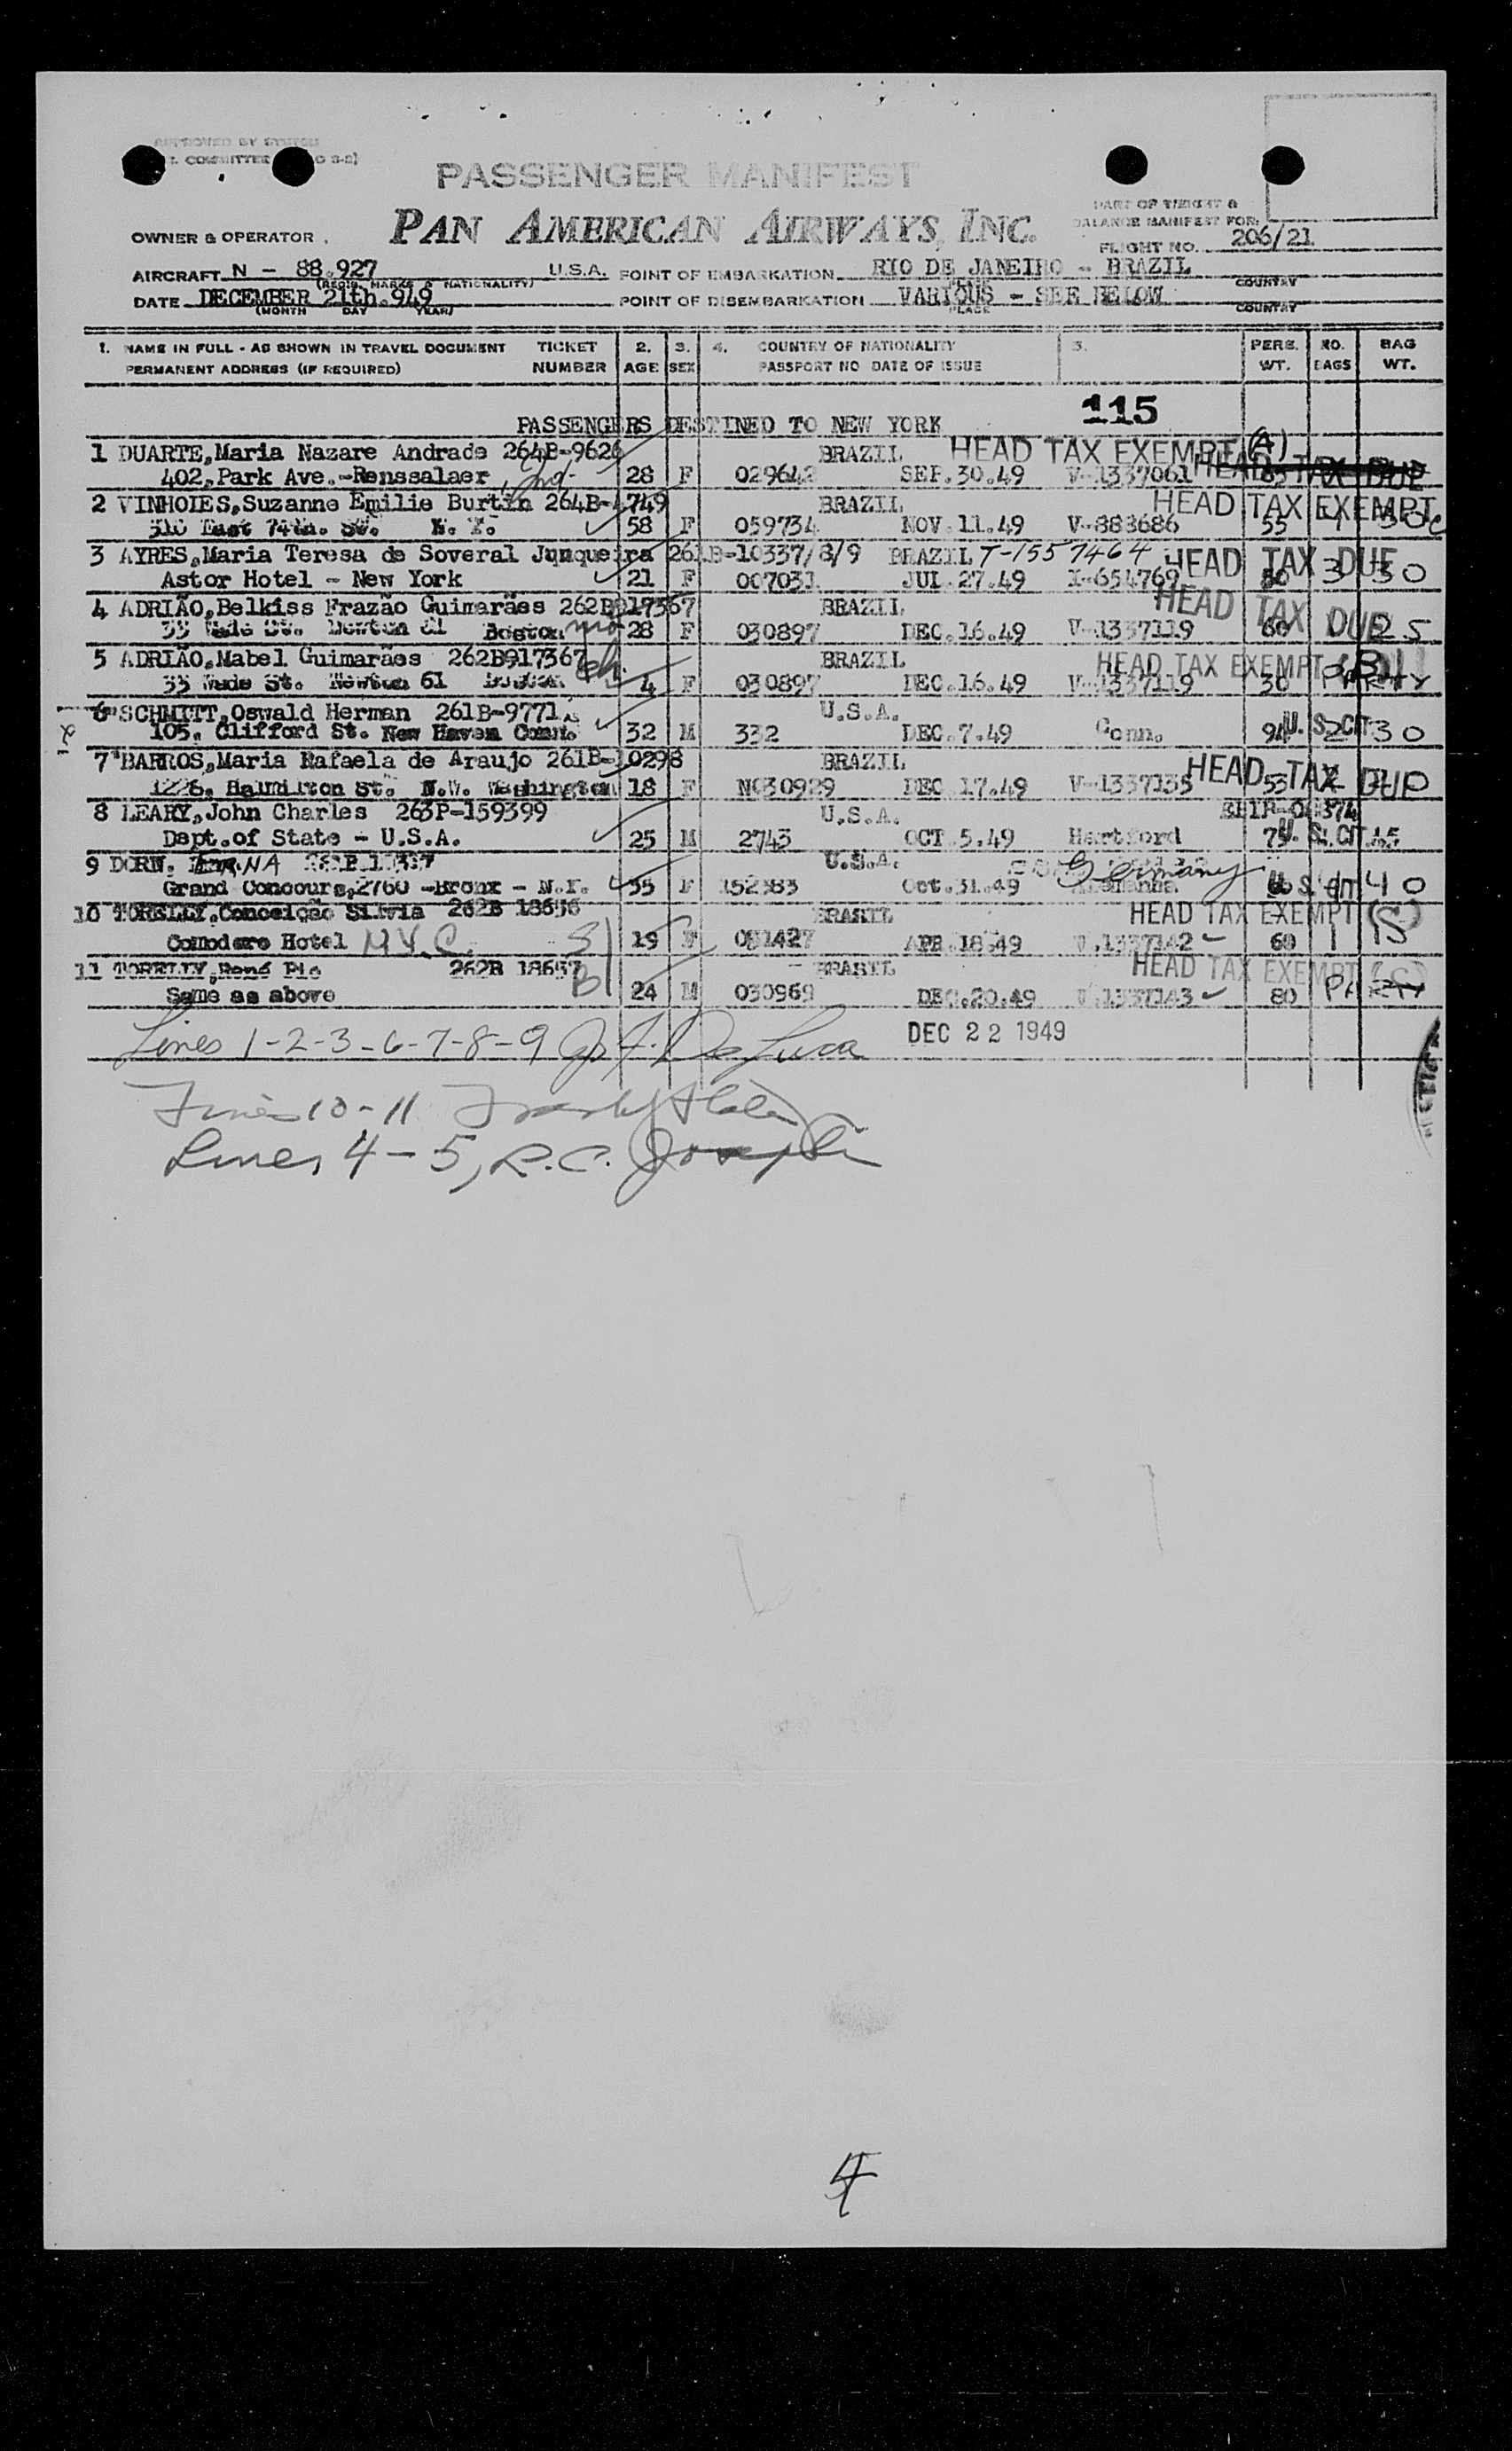 APPROVED BY
COMMITTEE
PASSENGER MANIFEST
PAN AMERICAN AIRWAYS, INC.
PART OF WEIGHT &
BALANCE MANIFEST FOR
OWNER & OPERATOR
FLIGHT NO. 206/21
AIRCRAFT N - 88.927 U.S.A. POINT OF EMBARKATION RIO DE JANEIRO - BRAZIL
(REGIS. MARKS & NATIONALITY) PLACE COUNTRY
DATE DECEMBER 21th.949 POINT OF DISEMBARKATION VARIOUS - SEE BELOW
(MONTH DAY YEAR) PLACE COUNTRY
1. NAME IN FULL - AS SHOWN IN TRAVEL DOCUMENT TICKET 2. 3. 4. COUNTRY OF NATIONALITY 5. PERS. NO. BAG
PERMANENT ADDRESS (IF REQUIRED) NUMBER AGE SEX PASSPORT NO DATE OF ISSUE WT. BAGS WT.
115
PASSENGERS DESTINED TO NEW YORK
1 DUARTE,Maria Nazare Andrade 264B-9626 BRAZIL HEAD TAX EXEMPT (A)
402,Park Ave.-Renssalaer 28 F 029642 SEP.30.49 V-1337061 HEAD TAX DUE
2 VINHOIES,Suzanne Emilie Burtin 264B-4749 BRAZIL HEAD TAX EXEMPT
310 East 74th. St. N. Y. 58 F 059734 NOV.11.49 V-888686 55
3 AYRES,Maria Teresa de Soveral Junqueira 261B-10337/8/9 BRAZIL T-1557464 HEAD TAX DUE
Astor Hotel - New York 21 F 007031 JUL.27.49 X-654769 50 3 30
4 ADRIÃO,Belkiss Frazão Guimarães 262B917367 BRAZIL HEAD TAX DUE
33 Wade St. Newton 61 Boston 28 F 030897 DEC.16.49 V-1337119 60 25
5 ADRIÃO,Mabel Guimarães 262B917367 BRAZIL HEAD TAX EXEMPT (B)
33 Wade St. Newton 61 Boston 4 F 030897 DEC.16.49 V-1337119 30 PARTY
6 SCHMITT,Oswald Herman 261B-9771 U.S.A.
105. Clifford St. New Haven Conn. 32 M 332 DEC.7.49 Conn. 94 U. S. CIT. 2 30
7 BARROS,Maria Rafaela de Araujo 261B-10298 BRAZIL HEAD TAX DUE
1226. Halmilton St. N.W. Washington 18 F N030929 DEC 17.49 V-1337135 53
8 LEARY,John Charles 263P-159399 U.S.A.
Dept.of State - U.S.A. 25 M 2743 OCT.5.49 Hartford 75 U. S. CIT 15
9 DORN. ERNA U.S.A. Germany
Grand Concours,2760 -Bronx - N.Y. 55 F 152383 Oct.31.49 U. S. CIT 40
10 TORELLY,Conceição Silvia 262B 18656 BRASIL HEAD TAX EXEMPT (S)
Comodero Hotel N.Y.C. 19 F 081427 APR.18.49 V.1337142 60 1 15
11 TORELLY,René Pio 262B 18657 BRASIL HEAD TAX EXEMPT (S)
Same as above 24 M 030969 DEC.20.49 V.1337143 80 PARTY
Lines 1-2-3-6-7-8-9 J. F. De Luca DEC 22 1949
Lines 10-11
Lines 4-5, R.C. Joseph
4